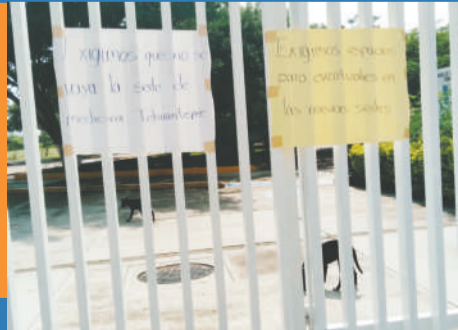 Exigimos que no se
vaya la sede de
medicina Tehuantepec
Exigimos espacios
para evaluarles en
las nuevas sedes